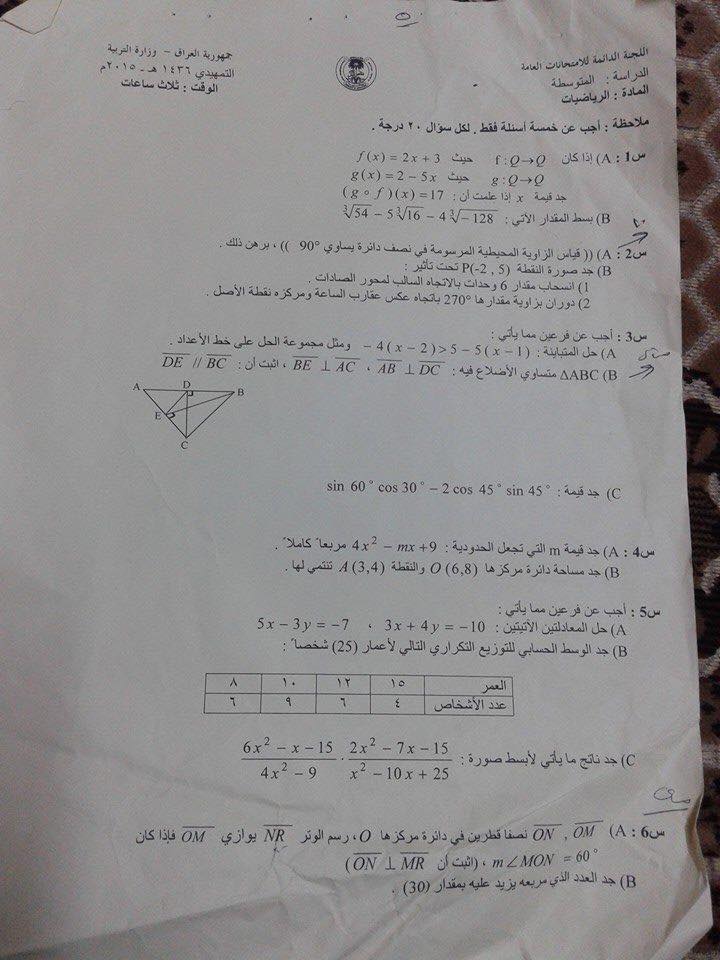 اللجنة الدائمة للامتحانات العامة
الدراسة : المتوسطة
المادة : الرياضيات
جمهورية العراق - وزارة التربية
التمهيدي ١٤٣٦ هـ - ٢٠١٥م
الوقت : ثلاث ساعات
ملاحظة : أجب عن خمسة أسئلة فقط . لكل سؤال ٢٠ درجة .
س1 : A) إذا كان f : Q→Q حيث f(x) = 2x + 3
g : Q→Q حيث g(x) = 2 − 5x
جد قيمة x إذا علمت أن : (g ∘ f)(x) = 17
B) بسط المقدار الآتي : ∛54 − 5∛16 − 4∛−128
٢٠
س2 : A) (( قياس الزاوية المحيطية المرسومة في نصف دائرة يساوي 90° )) ، برهن ذلك .
B) جد صورة النقطة P(-2 , 5) تحت تأثير :
1) انسحاب مقدار 6 وحدات بالاتجاه السالب لمحور الصادات .
2) دوران بزاوية مقدارها 270° باتجاه عكس عقارب الساعة ومركزه نقطة الأصل .
س3 : أجب عن فرعين مما يأتي :
A) حل المتباينة : − 4(x − 2) > 5 − 5(x − 1) ومثل مجموعة الحل على خط الأعداد .
B) ΔABC متساوي الأضلاع فيه : AB ⊥ DC ، BE ⊥ AC ، اثبت أن : DE // BC
A D B
E
C
C) جد قيمة : sin 60° cos 30° − 2 cos 45° sin 45°
س4 : A) جد قيمة m التي تجعل الحدودية : 4x² − mx + 9 مربعاً كاملاً .
B) جد مساحة دائرة مركزها O (6,8) والنقطة A (3,4) تنتمي لها .
س5 : أجب عن فرعين مما يأتي :
A) حل المعادلتين الآتيتين : 3x + 4y = −10 ، 5x − 3y = −7
B) جد الوسط الحسابي للتوزيع التكراري التالي لأعمار (25) شخصاً :
العمر ١٥ ١٢ ١٠ ٨
عدد الأشخاص ٤ ٦ ٩ ٦
C) جد ناتج ما يأتي لأبسط صورة : (6x² − x − 15)/(4x² − 9) · (2x² − 7x − 15)/(x² − 10x + 25)
س6 : A) OM , ON نصفا قطرين في دائرة مركزها O، رسم الوتر NR يوازي OM فإذا كان
m∠MON = 60° ، (اثبت أن ON ⊥ MR)
B) جد العدد الذي مربعه يزيد عليه بمقدار (30) .